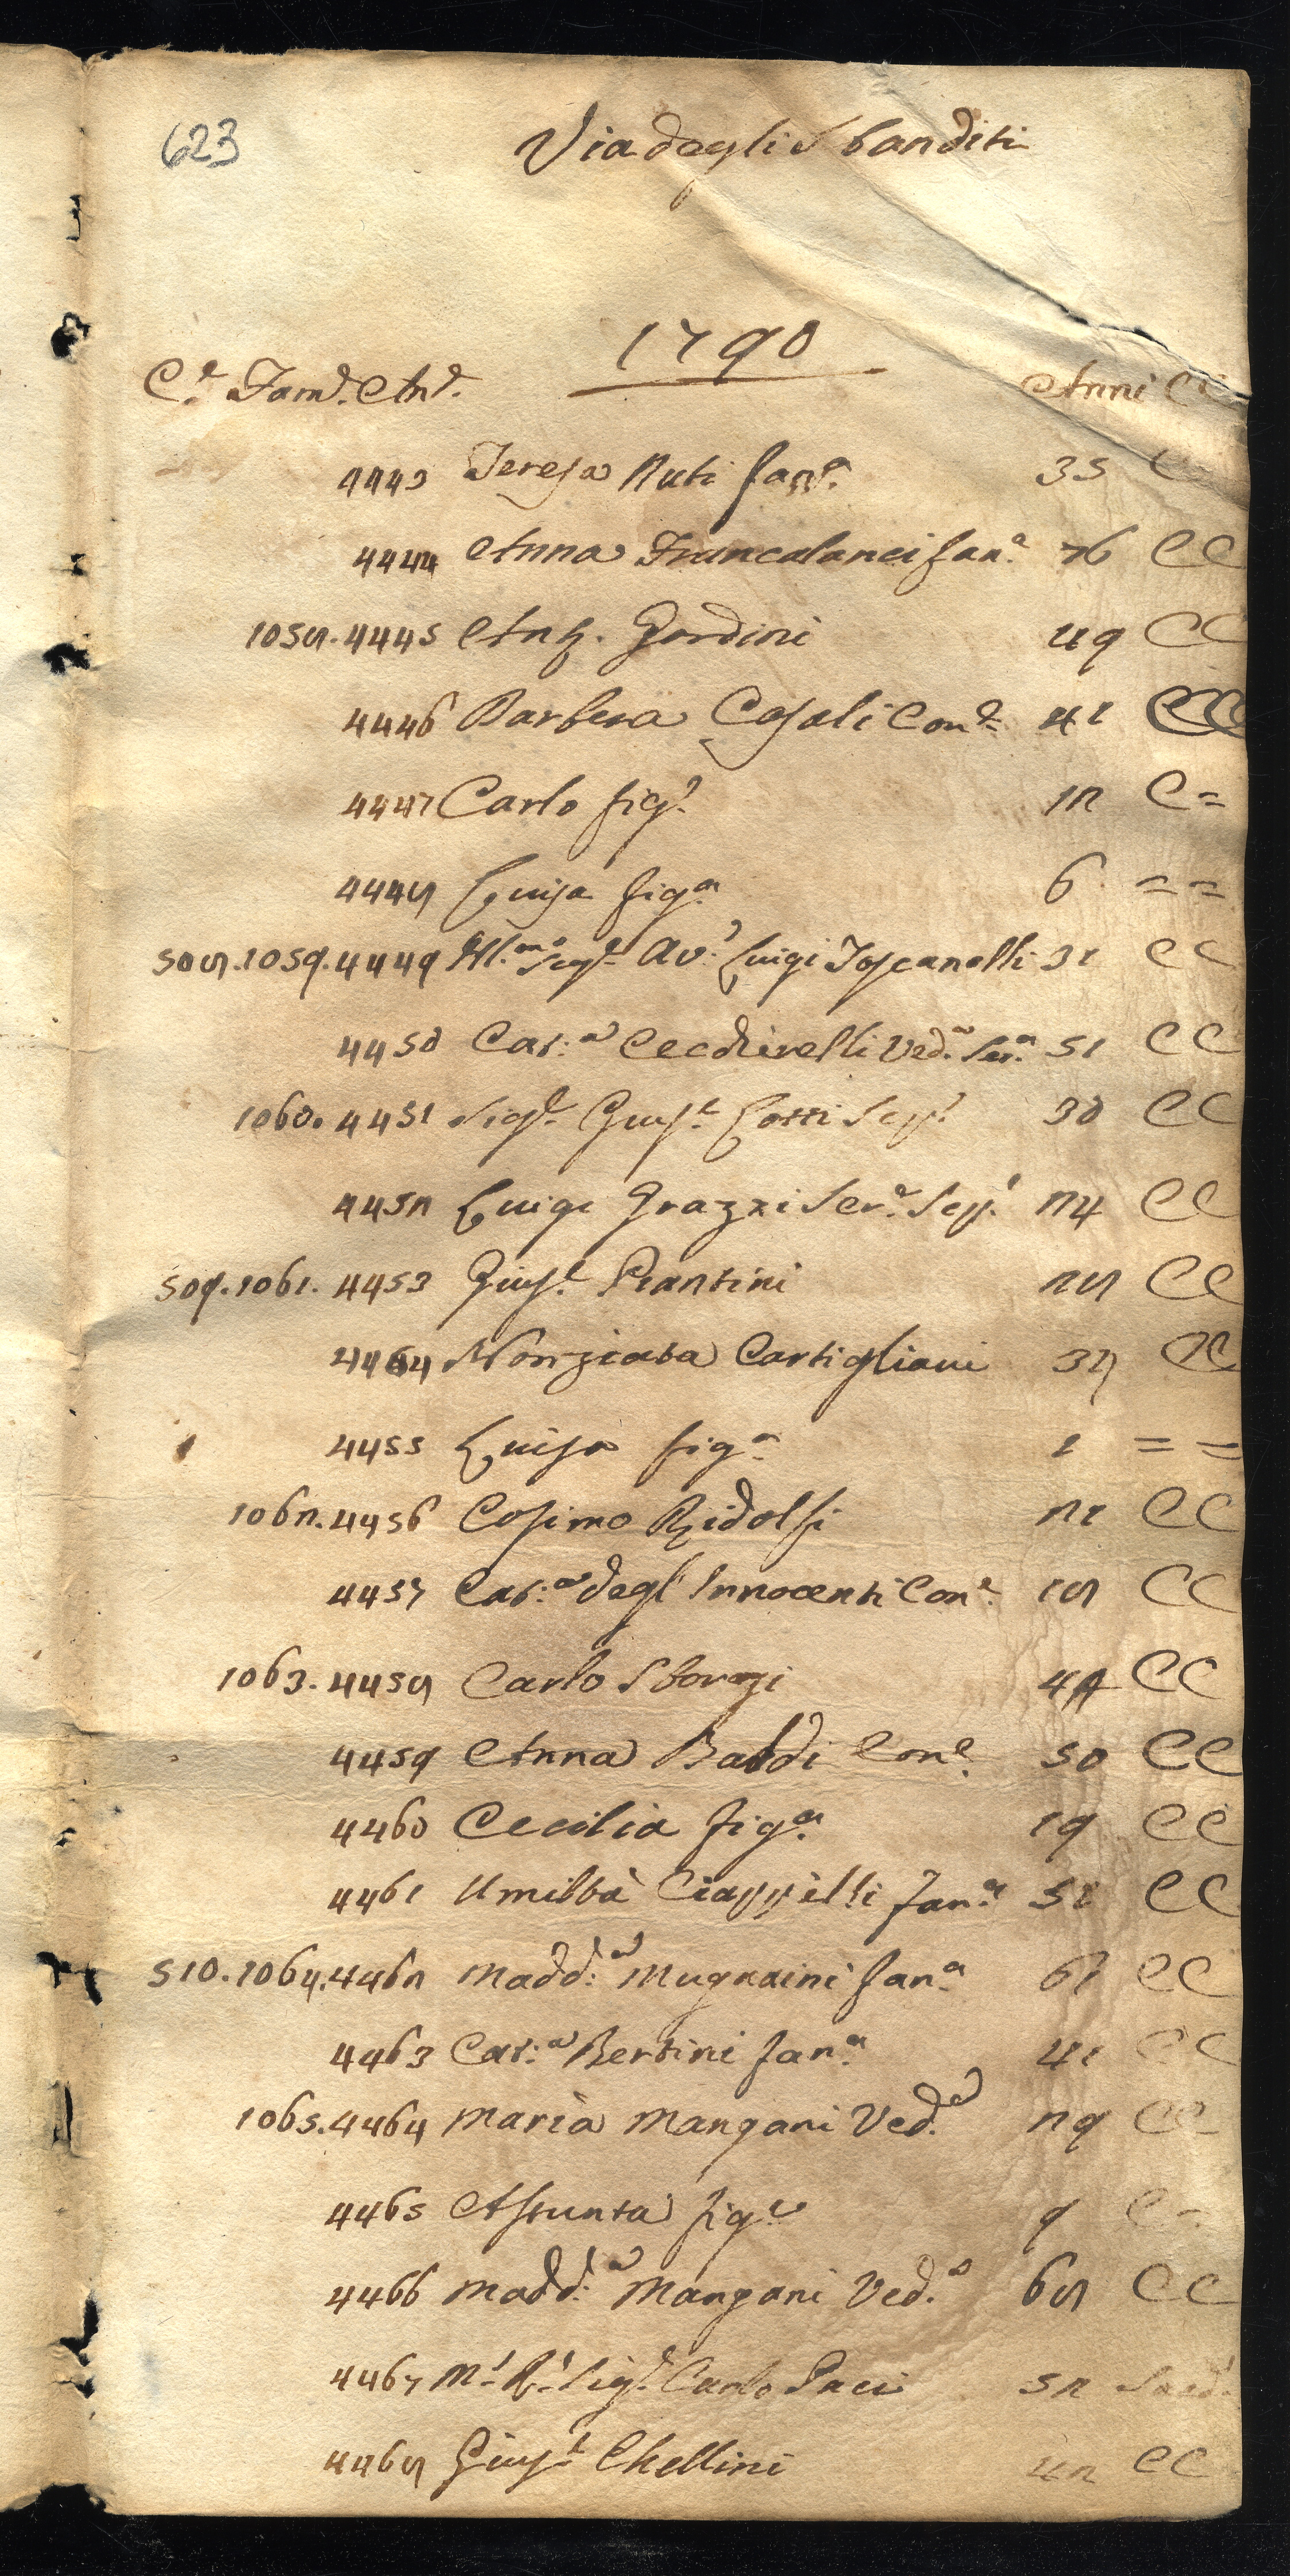 623
Via degli Sbanditi
1790
C.e Fam.e An.e Anni CC
4443 Teresa Nuti fan.a 35 C
4444 Anna Francalanci fan.a 76 CC
1058. 4445 Ant. Gordini 49 CC
4446 Barbera Casali Con.e 41 CC
4447 Carlo fig.o 12 C=
4448 Luisa fig.a 6 = =
508. 1059. 4449 Ill.mo Sig.e Av.o Luigi Toscanelli 31 CC
4450 Cat.a Cecchirelli Ved.a Ser.a 51 CC
1060. 4451 Sig.e Gius.e Lotti Sep.o 30 CC
4452 Luigi Grazzi Ser.e Sep.o 24 CC
509. 1061. 4453 Gius.e Piantini 28 CC
4454 Nonziata Cartigliani 37 CC
4455 Luisa fig.a 1 = =
1062. 4456 Cosimo Ridolfi 21 CC
4457 Cat.a degl'Innocenti Con.e 18 CC
1063. 4458 Carlo Sforzi 44 CC
4459 Anna Baldi Con.e 50 CC
4460 Cecilia fig.a 19 CC
4461 Umiltà Ciappelli fan.a 51 CC
510. 1064. 4462 Madd.a Mugnaini fan.a 61 CC
4463 Cat.a Bertini fan.a 41 CC
1065. 4464 Maria Mangani Ved.a 29 CC
4465 Assunta fig.a 9 C=
4466 Madd.a Mangani Ved.a 68 CC
4467 M.o R.o Sig.e Carlo Paci 52 Sacd.
4468 Gius.e Chellini 42 CC